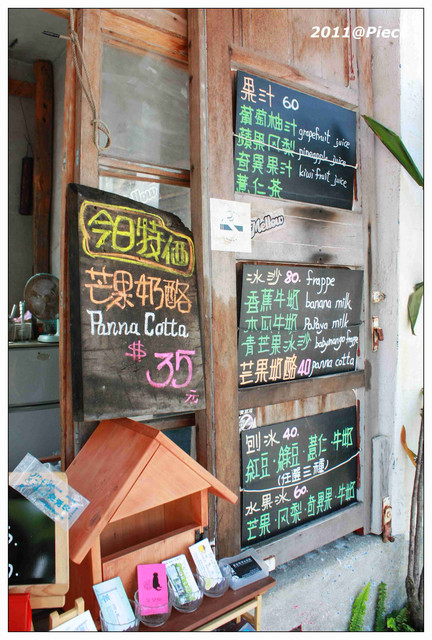 2011@Piec
果汁 60
葡萄柚汁 grapefruit juice
蘋果鳳梨 pineapple juice
奇異果汁 kiwi fruit juice
薏仁茶
Mellow
今日特価
芒果奶酪
Panna Cotta
$35元
冰沙 80. frappe
香蕉牛奶 banana milk
木瓜牛奶 PaPaya milk
青芒果冰沙
芒果奶酪 40 panna cotta
刨冰 40.
紅豆·綠豆·薏仁·牛奶
(任選三種)
水果冰 60.
芒果·凤梨·奇異果·牛奶